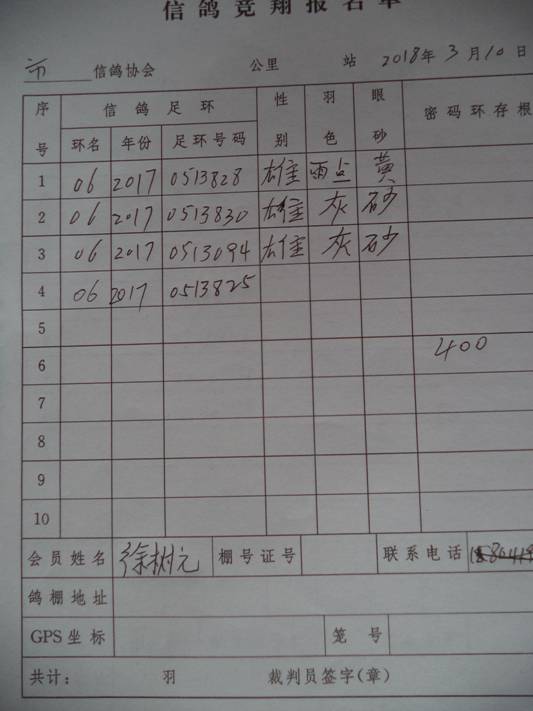 信鸽竞翔报名单
市 信鸽协会 公里 站 2018年3月10日
序号 信鸽足环 性别 羽色 眼砂 密码环存根
环名 年份 足环号码
1 06 2017 0513828 雄 雨点 黄
2 06 2017 0513830 雄 灰 砂
3 06 2017 0513094 雄 灰 砂
4 06 2017 0513825
5
6 400
7
8
9
10
会员姓名 徐树元 棚号证号 联系电话
鸽棚地址
GPS坐标 笼号
共计： 羽 裁判员签字(章)